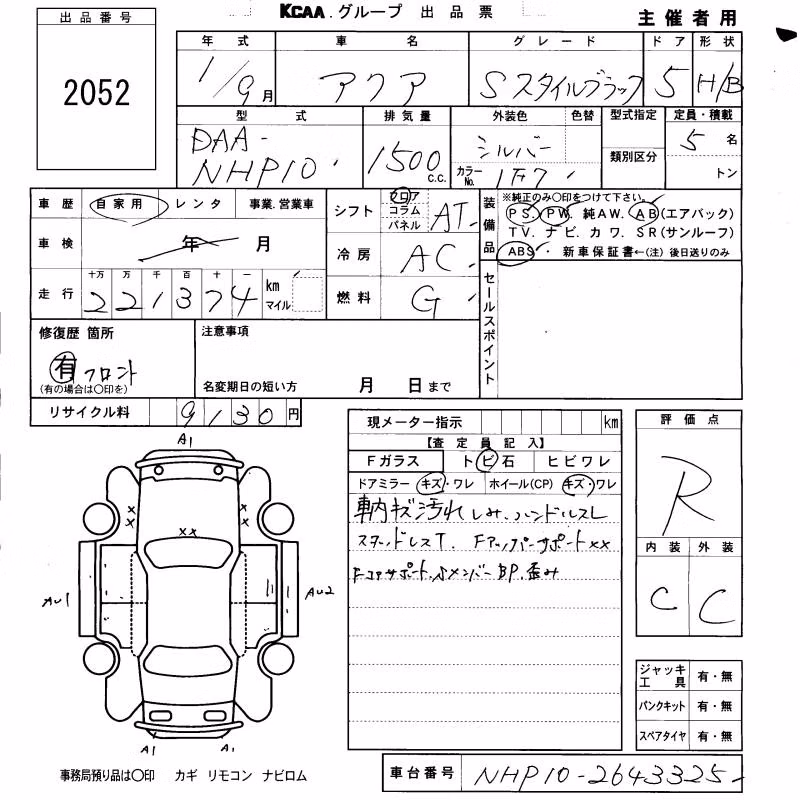 KCAA.グループ 出品票
主催者用
出品番号
2052
年式 車名 グレード ドア 形状
1/9月 アクア Sスタイルブラック 5 H/B
型式 排気量 外装色 色替 型式指定 定員・積載
DAA-
NHP10 1500 c.c. シルバー カラーNo. 1F7 類別区分 5名
トン
車歴 自家用 レンタ 事業.営業車
車検 年 月
走行 十万 万 千 百 十 一
221374 km マイル
シフト フロア コラム パネル AT
冷房 AC
燃料 G
装備品 ※純正のみ〇印をつけて下さい。
PS. PW. 純AW. AB(エアバック)
TV. ナビ. カワ. SR(サンルーフ)
ABS 新車保証書←(注)後日送りのみ
セールスポイント
修復歴 箇所
有 フロント
(有の場合は〇印を)
注意事項
名変期日の短い方 月 日まで
リサイクル料 9130円
現メーター指示 km
【査定員記入】
Fガラス トビ石 ヒビワレ
ドアミラー キズ・ワレ ホイール(CP) キズ・ワレ
車内キズ汚れ しみ、ハンドルスレ
スタッドレスT. Fアッパーサポート××
Fコアサポート、Sメンバー BP. 歪み
評価点
R
内装 外装
C C
ジャッキ工具 有・無
パンクキット 有・無
スペアタイヤ 有・無
A1
××
AU1 AU2
A1 A1
事務局預り品は〇印 カギ リモコン ナビロム
車台番号 NHP10-2643325